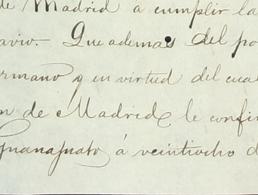 de Madrid á cumplir la
avio. Que ademas del po
ermano y en virtud del cual
n de Madrid le confir
Guanajuato á veintiocho d